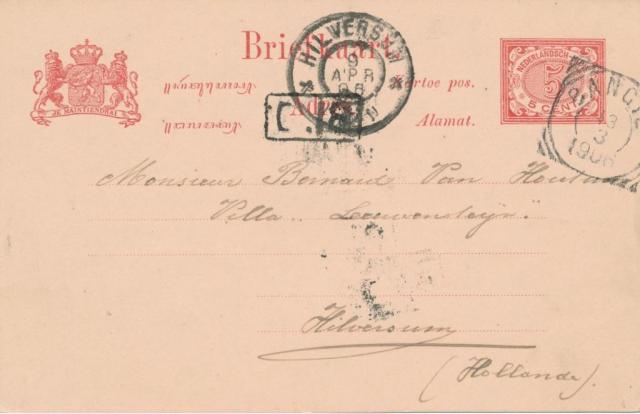 Briefkaart
HILVERSUM
9
APR
06
NEDERLANDSCH
5
5 CENT
JE MAINTIENDRAI
Kertoe pos.
Adres
Alamat.
3
1906
Monsieur Bernard Van Houten
Villa "Leeuwensteyn"
Hilversum
(Hollande)